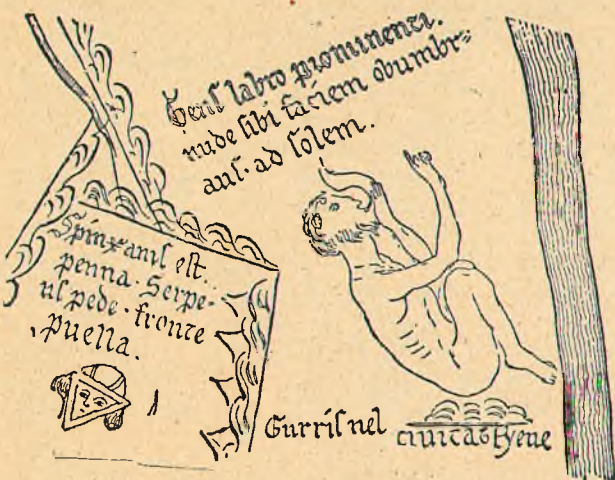 Gens labro prominenti.
unde sibi faciem obumbr=
ans. ad solem.
Spinx auis est.
penna. Serpe=
ns pede. fronte
.puella.
Gurris uel
ciuitas Syene